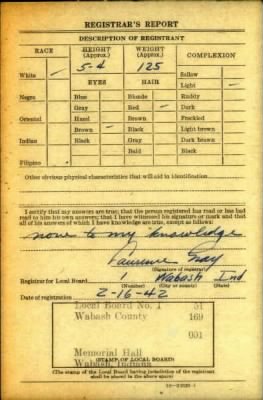 REGISTRAR'S REPORT
DESCRIPTION OF REGISTRANT
RACE HEIGHT (Approx.) WEIGHT (Approx.) COMPLEXION
5-4 125
White — Sallow
EYES HAIR Light —
Negro Blue Blonde Ruddy
Gray Red — Dark
Oriental Hazel Brown Freckled
Brown — Black Light brown
Indian Black Gray Dark brown
Bald Black
Filipino
Other obvious physical characteristics that will aid in identification
I certify that my answers are true; that the person registered has read or has had
read to him his own answers; that I have witnessed his signature or mark and that
all of his answers of which I have knowledge are true, except as follows:
none to my knowledge
Laurence Gray
(Signature of registrar)
Registrar for Local Board 1 Wabash Ind
(Number) (City or county) (State)
Date of registration 2-16-42
Local Board No. 1 51
Wabash County 169
001
Memorial Hall
Wabash, Indiana
(STAMP OF LOCAL BOARD)
(The stamp of the Local Board having jurisdiction of the registrant
shall be placed in the above space.)